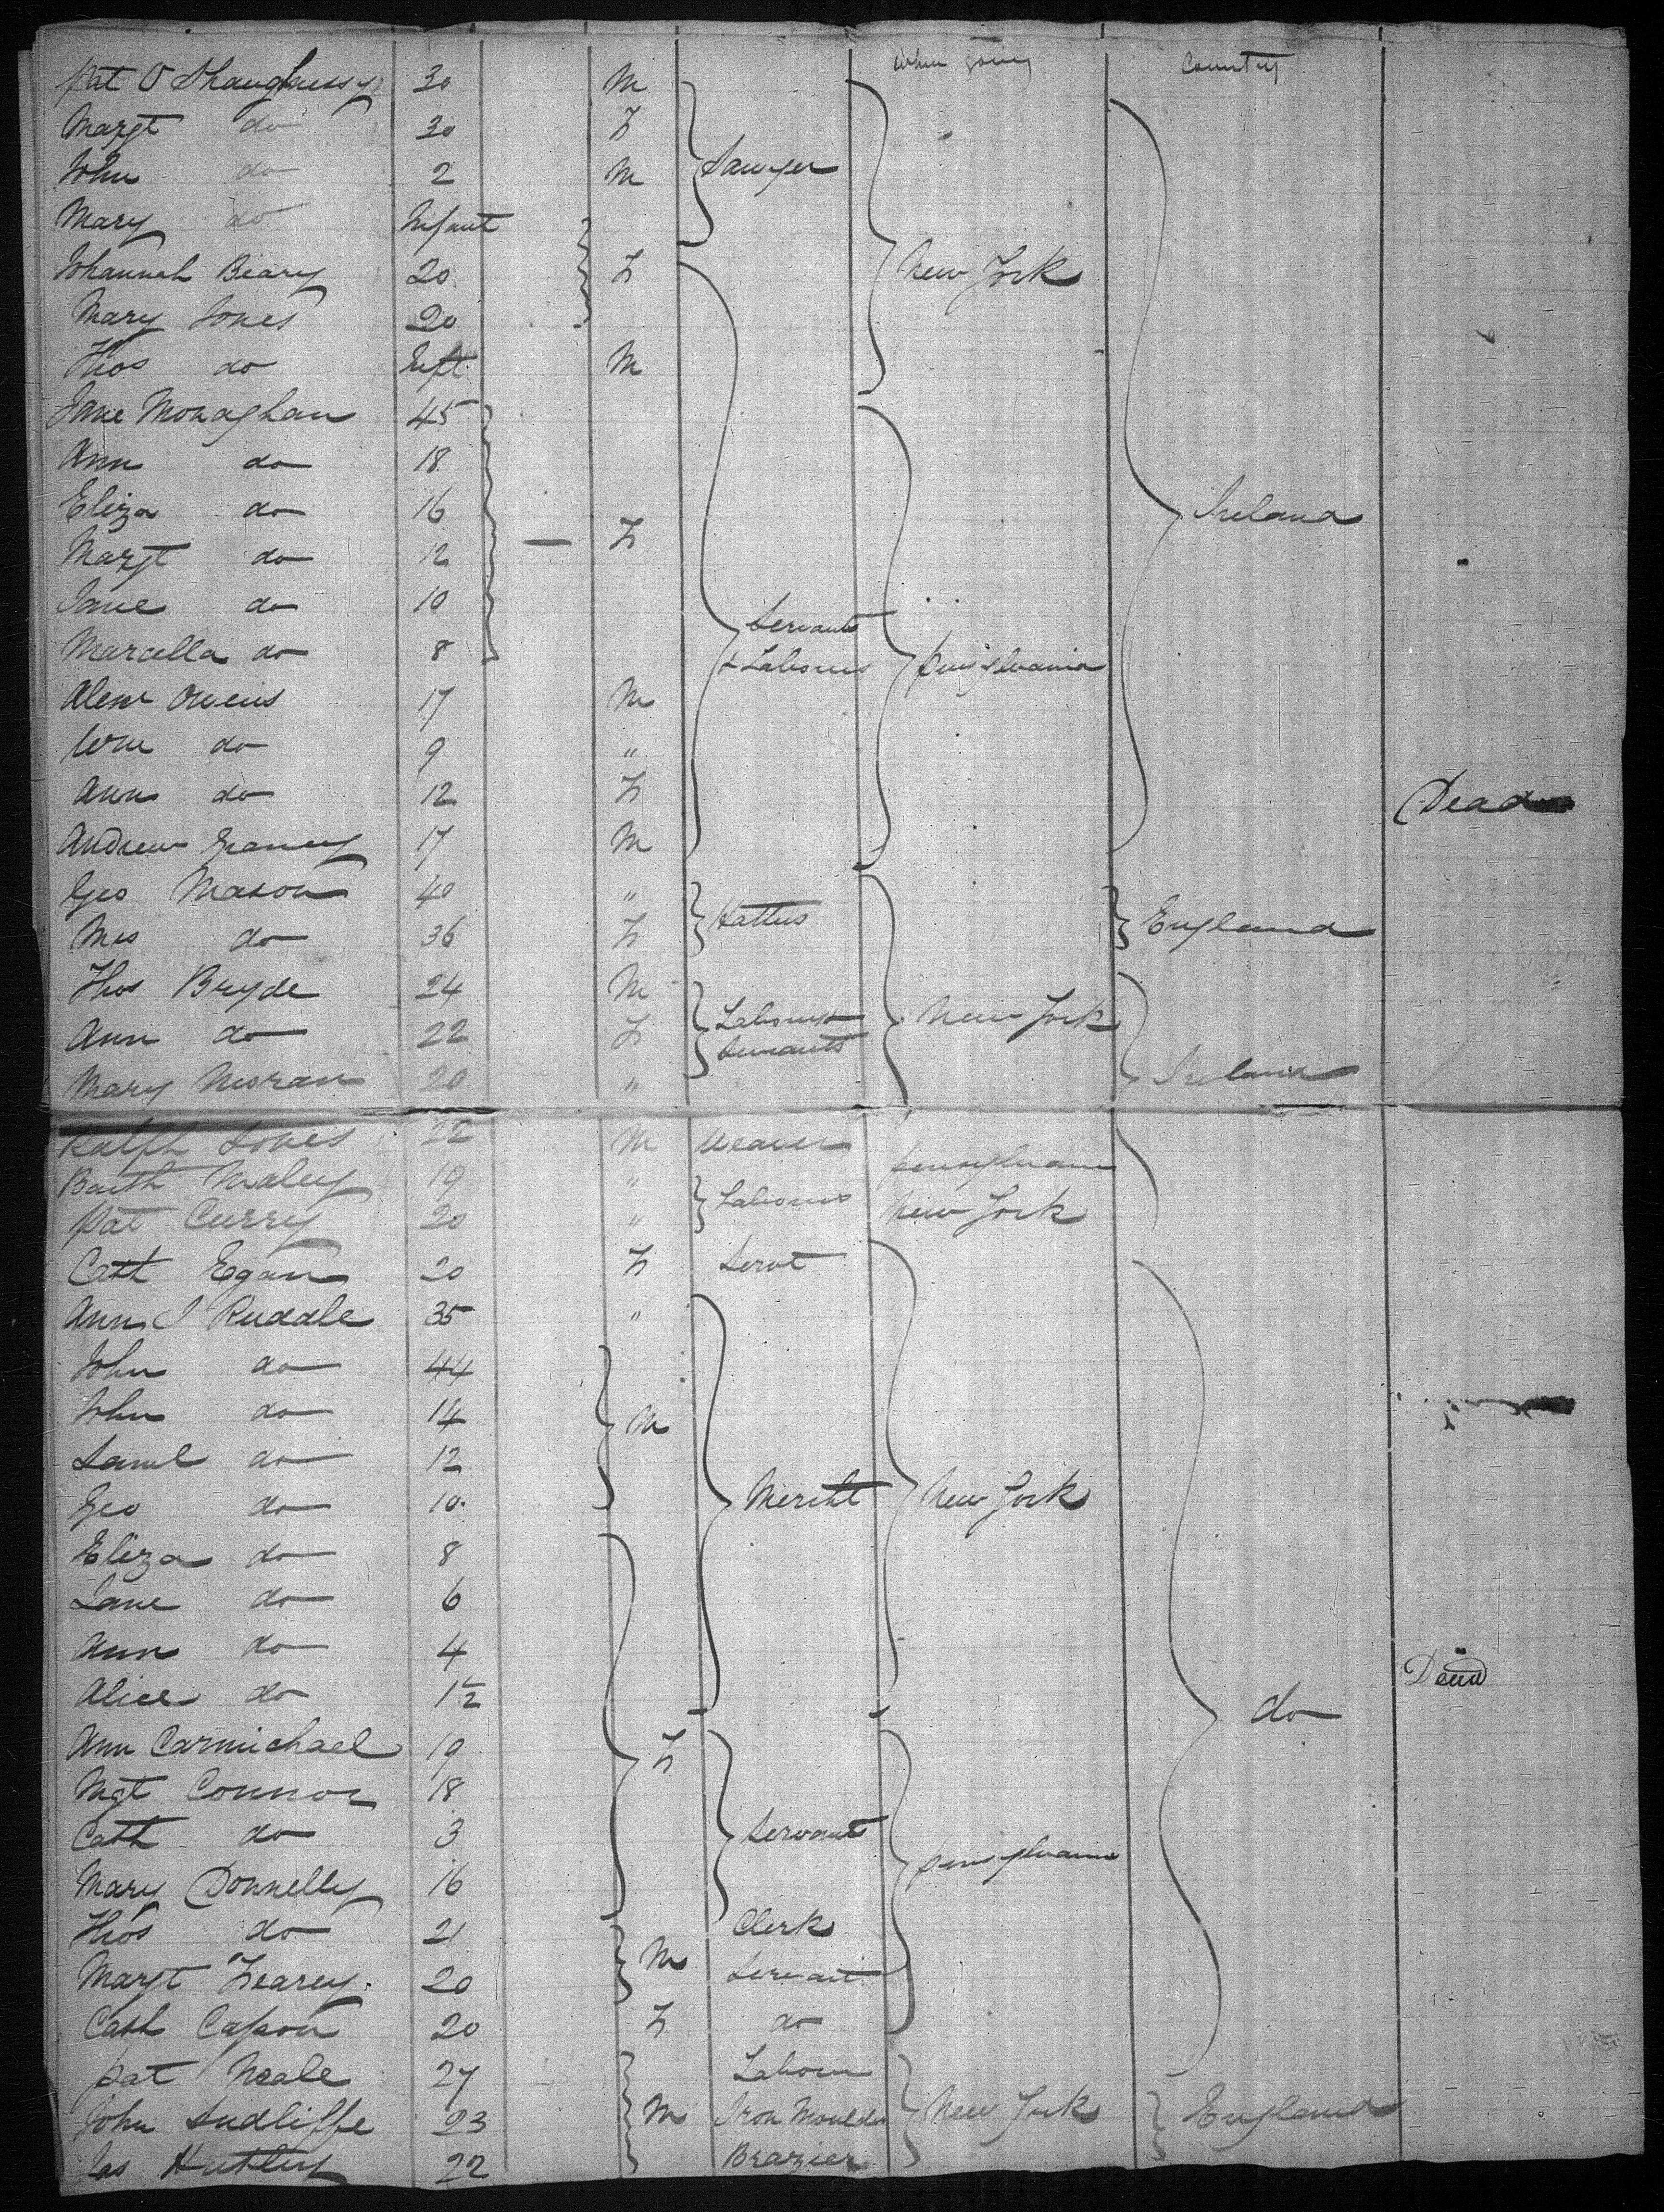 When going Country
Pat O Shaughnessy 30 M
Margt do 30 F
John do 2 M Sawyer
Mary do Infant
Johannah Beary 20 F New York
Mary Jones 20
Thos do Inft M
Jane Monaghan 45
Ann do 18
Eliza do 16 Ireland
Margt do 12 — F
Jane do 10
Marcella do 8 Servants & Labours Pensylvania
Alexr Owens 17 M
Wm do 9 "
Ann do 12 F Dead
Andrew 17 M
Geo Mason 40 "
Mrs do 36 F Hatters England
Thos Bryde 24 M
Ann do 22 F Labours & Servants New York
Mary Moran 20 " Ireland
Ralph Jones 22 M Weaver Pensylvania
Barth Maley 19 " Labours
Pat Curry 20 " New York
Cath Egan 20 F Servt
Ann J Ruddle 35 "
John do 44
John do 14 M
Saml do 12
Geo do 10 Mercht New York
Eliza do 8
Jane do 6
Ann do 4
Alice do 1½ Dead
do
Ann Carmichael 19 F
Mgt Connor 18
Cath do 3 Servants
Mary Donnelly 16 Pensylvania
Thos do 21 Clerk
Margt 20 M Servant
Cath 20 F do
Pat Neale 27 Labour
John Sudliffe 23 M Iron Moulder New York England
Jas 22 Brazier